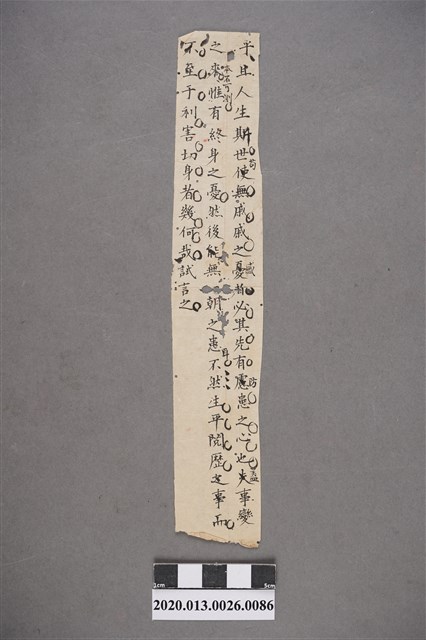 乎且人生斯世使無戚戚之憂者必其先有慮患之心也夫事變
之來惟有終身之憂然後能無朝之患不然生平閱歷之事而
不至于利害切身者幾何哉試言之
1cm
5cm
2020.013.0026.0086